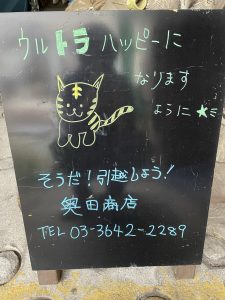 ウルトラハッピーに
なります
ように★彡
そうだ!引越しよう!
奥田商店
TEL 03-3642-2289